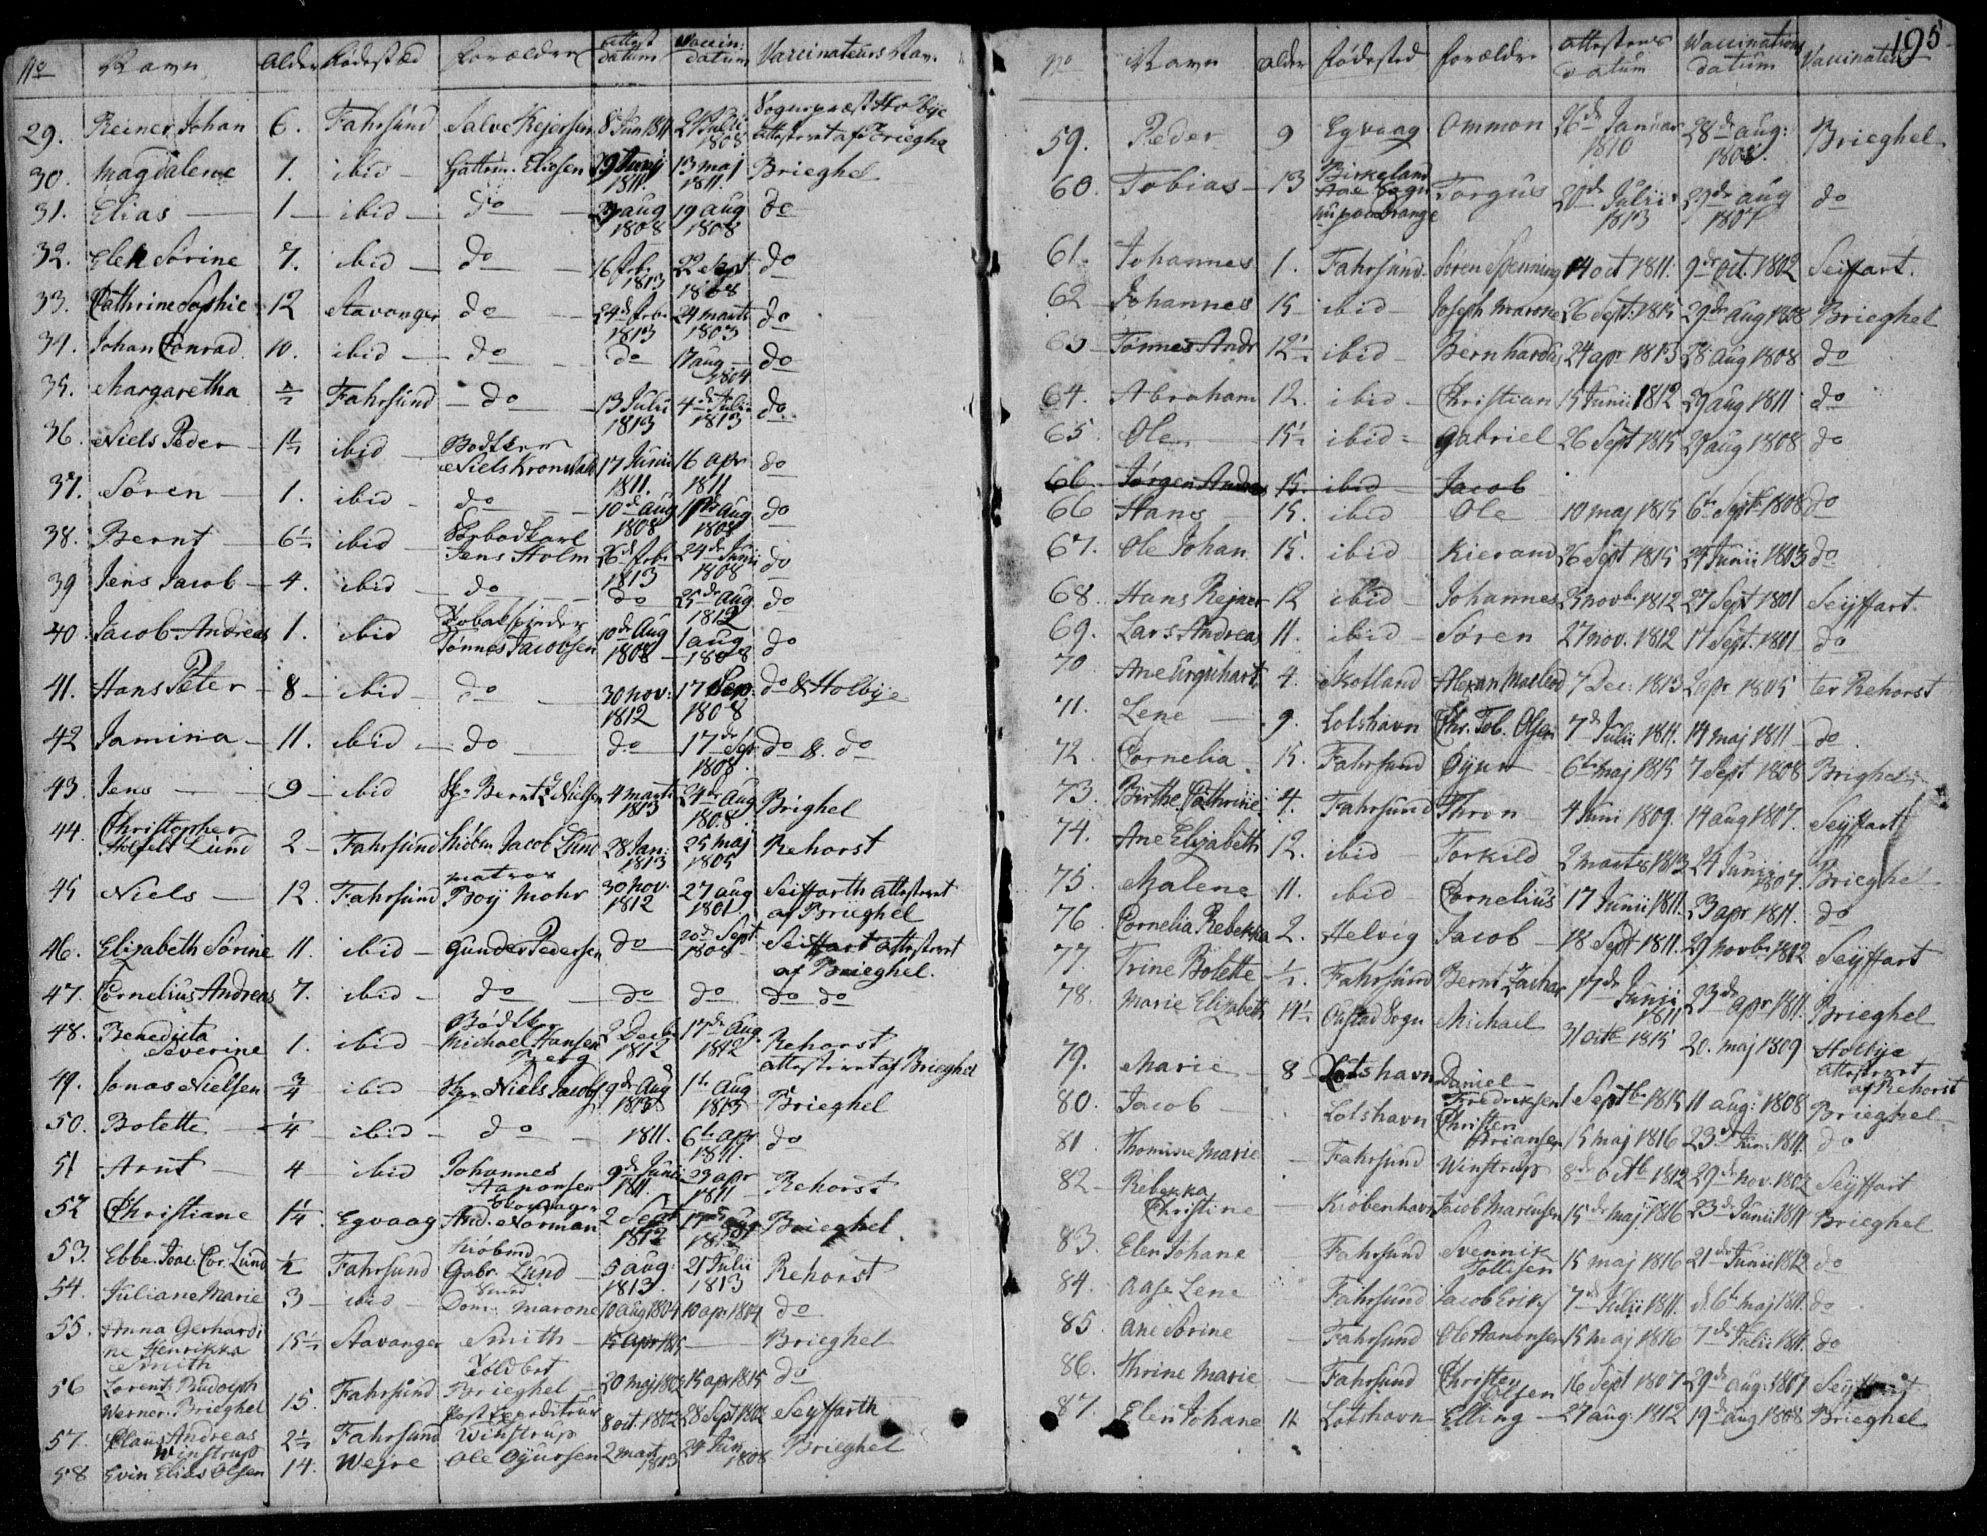 No Navn Alder Fødested Forældre Attest datum Vaccin: datum Vaccinateurs Nav.
29. Reiner Johan 6. Fahrsund Salve Rejersen 8 Jun 1811 21 Julii 1808 Sogneprest Holbye attesteret af Brieghel
30. Magdalene 1. ibid Guttorm Eliesen 19 Junij 1811. 13 maj 1811. Brieghel
31. Elias 1 ibid do 29 aug 1808 19 aug 1808 do
32. Elen Sørine 7. ibid do 16 Feb. 1813 22 Sept 1808 do
33. Cathrine Sophie 12 Stavanger do 24de Feb. 1813 24 marti 1803 do
34. Johan Conrad 10. ibid do do 17 aug 1804 do
35. Margaretha Fahrsund do 13 Julii 1813 4de Julii 1813 do
36. Niels Peder 1½ ibid Bødtker Niels Kronvald 17 Junii 1811. 16 apr 1811 do
37. Søren 1. ibid do 10de aug 1808 1ste aug 1808 do
38. Bernt 6½ ibid Jens Holm 26de Feb. 1813 24de Junii 1808 do
39 Jens Jacob 4. ibid do do 25de aug 1812 do
40. Jacob Andreas 1. ibid Tobakspinder Tønnes Jacobsen 10de Aug 1808 1 aug 1808 do
41. Hans Peter 8 ibid do 30 nov: 1812 17 Sep. 1808 do & Holbije
42 Jamina 11. ibid do do 17de Sep 1808. do & do
43. Jens 9 ibid Skr Bernt Nielsen 4 marti 1813 24de Aug 1808. Brighel
44. Christopher Holfelt Lund 2 Fahrsund Kiøbm Jacob Lund 28 Jan: 1813 25 maj 1805 Rehorst
45 Niels 12. Fahrsund matros Boÿ Mohr 30 nov. 1812 27 aug 1801. Seiffarth attesteret af Brieghel
46. Elizabeth Sørine 11. ibid Gunder Pedersen do 20de Sept 1808 Seiffart attesteret af Brieghel.
47. Cornelius Andreas 7. ibid do do do do do
48. Benedicta Severine 1. ibid Bødtker Michael Hansen Berg 2 Decbr 1812 17de Aug 1812 Rehorst attesteret af Brieghel
49. Jonas Nielsen ¾ ibid Skr Niels Jacobs 9de Aug 1813 1ste Aug 1813 Brieghel
50. Bolette ¼ ibid do 1811. 6te apr 1811. do
51 Arnt 4 ibid Johannes Aanonsen 9de Junii 1811. 23 apr 1811 Rehorst
52 Christiane 1¼. Egvaag And. Norman 2 Sept 1812 17de Aug 1812 Brieghel.
53. Ebbe Isac: Cor. Lund ½ Fahrsund Kiøbmd Gabr. Lund 5 aug: 1813. 21 Julii 1813 Rehorst
54. Juliane Marie 3 ibid Dom. Marone 10 aug 1804 10 apr 1804 do
55. Anna Gerhardine Henrikka Smith 15½ Stavanger Smith 15 apr 1815 Brieghel
56 Lorentz Rudolph Werner Brieghel 15. Fahrsund Brieghel 20 maj 1802 15 apr 1815 do
57. Claus Andreas Winstrup 2½ Fahrsund Winstrup 8 oct 1802 28 Sept 1802 Seyffarth
58 Evin Elias Olsen 14. Wejre Ole Oÿursen 2 marti 1813 24 Jun 1808 Brieghel
195
No Navn Alder Fødested Forældre Attestens datum Vaccinations datum Vaccinateu
59. Peder 9 Egvaag Ommon 26de Januar 1810 28de aug: 1808. Brieghel
60. Tobias 13 Birkeland Sogn Torgus 20de Julii 1813 29de aug 1807 do
61. Johannes 1. Fahrsund Søren Spenning 14 oct 1811. 9de Oct. 1802 Seiffart.
62 Johannes 15 ibid Joseph Marone 26 Sept: 1815 29de aug 1808 Brieghel
63 Tønnes Andr 12½ ibid Bernhardus 24 apr 1813 28 aug 1808 do
64. Abraham 12. ibid Christian 15 Junii 1812 29 aug 1811 do
65 Ole 15½ ibid Gabriel 26 Sept 1815 29 aug 1808 do
66. Jørgen Andreas 15. ibid Jacob
66 Hans 15. ibid Ole 10 maj 1815 6te Sept 1808 do
67. Ole Johan 15. ibid Kierand 26 Sept 1815 24 Junii 1803 do
68. Hans Rejner 12 ibid Johannes 25 novb: 1812 27 Sept 1801 Seÿffart.
69. Lars Andreas 11. ibid Søren 27 nov. 1812 17 Sept. 1801 do
70 Ane Urquhart 4. Skotland Alexan Macleod 7 Dec: 1813 2 apr 1805 ter Rehorst
71. Lene 9. Lotshavn Chr. Tob. Olsen 7de Julii 1811. 14 maj 1811 do
72. Cornelia 15. Fahrsund Oÿur 6te maj 1815 7 Sept 1808 Brighel
73. Birthe Cathrine 4. Fahrsund Thron 4 Juni 1809. 14 aug 1807. Seÿffart
74. Ane Elizabeth 12. ibid Torkild 2 martij 1813 24 Junii 1807. Brieghel
75. Malene 11. ibid Cornelius 17 Junii 1811. 23 apr 1811. do
76 Cornelia Rebekka 2. Helvig Jacob 18 Sept 1811. 29 novbr 1802 Seÿffart
77. Trine Bolette ½. Fahrsund Bernt Zachar 17de Junii 1811 23de apr 1811. Brieghel
78. Marie Elizabeth 14½ Oustad Sogn Michael 31 octb 1815 20. maj 1809 Holbije attesteret af Rehorst
79. Marie 8 Lotshavn Daniel Fredriksen 1 Septbr 1815 11 aug: 1808 Brieghel
80. Jacob Lotshavn Christen Ariansen 15 maj 1816 23de Juni 1811. do
81 Thomine Marie Fahrsund Winstrup 8de octb 1812 29de nov. 1802 Seÿffart
82 Rebekka Christine Kiøbenhavn Jacob Mariusen 15de maj 1816 23de Junii 1811 Brieghel
83. Elen Johane Fahrsund Svennik Tollisen 15 maj 1816 21de Junii 1812 do
84. Aase Lene Fahrsund Jacob Eriks 7de Julii 1811. d. 6te maj 1811. do
85 Ane Sørine Fahrsund Ole Aanonsen 15 maj 1816 7de Julii 1811. do
86. Thrine Marie Fahrsund Christen Olsen 16 Sept 1807 29de aug. 1807 Seÿffart
87. Elen Johane 12 Lotshavn Elling 27 aug. 1812 19de aug 1808 Brieghel